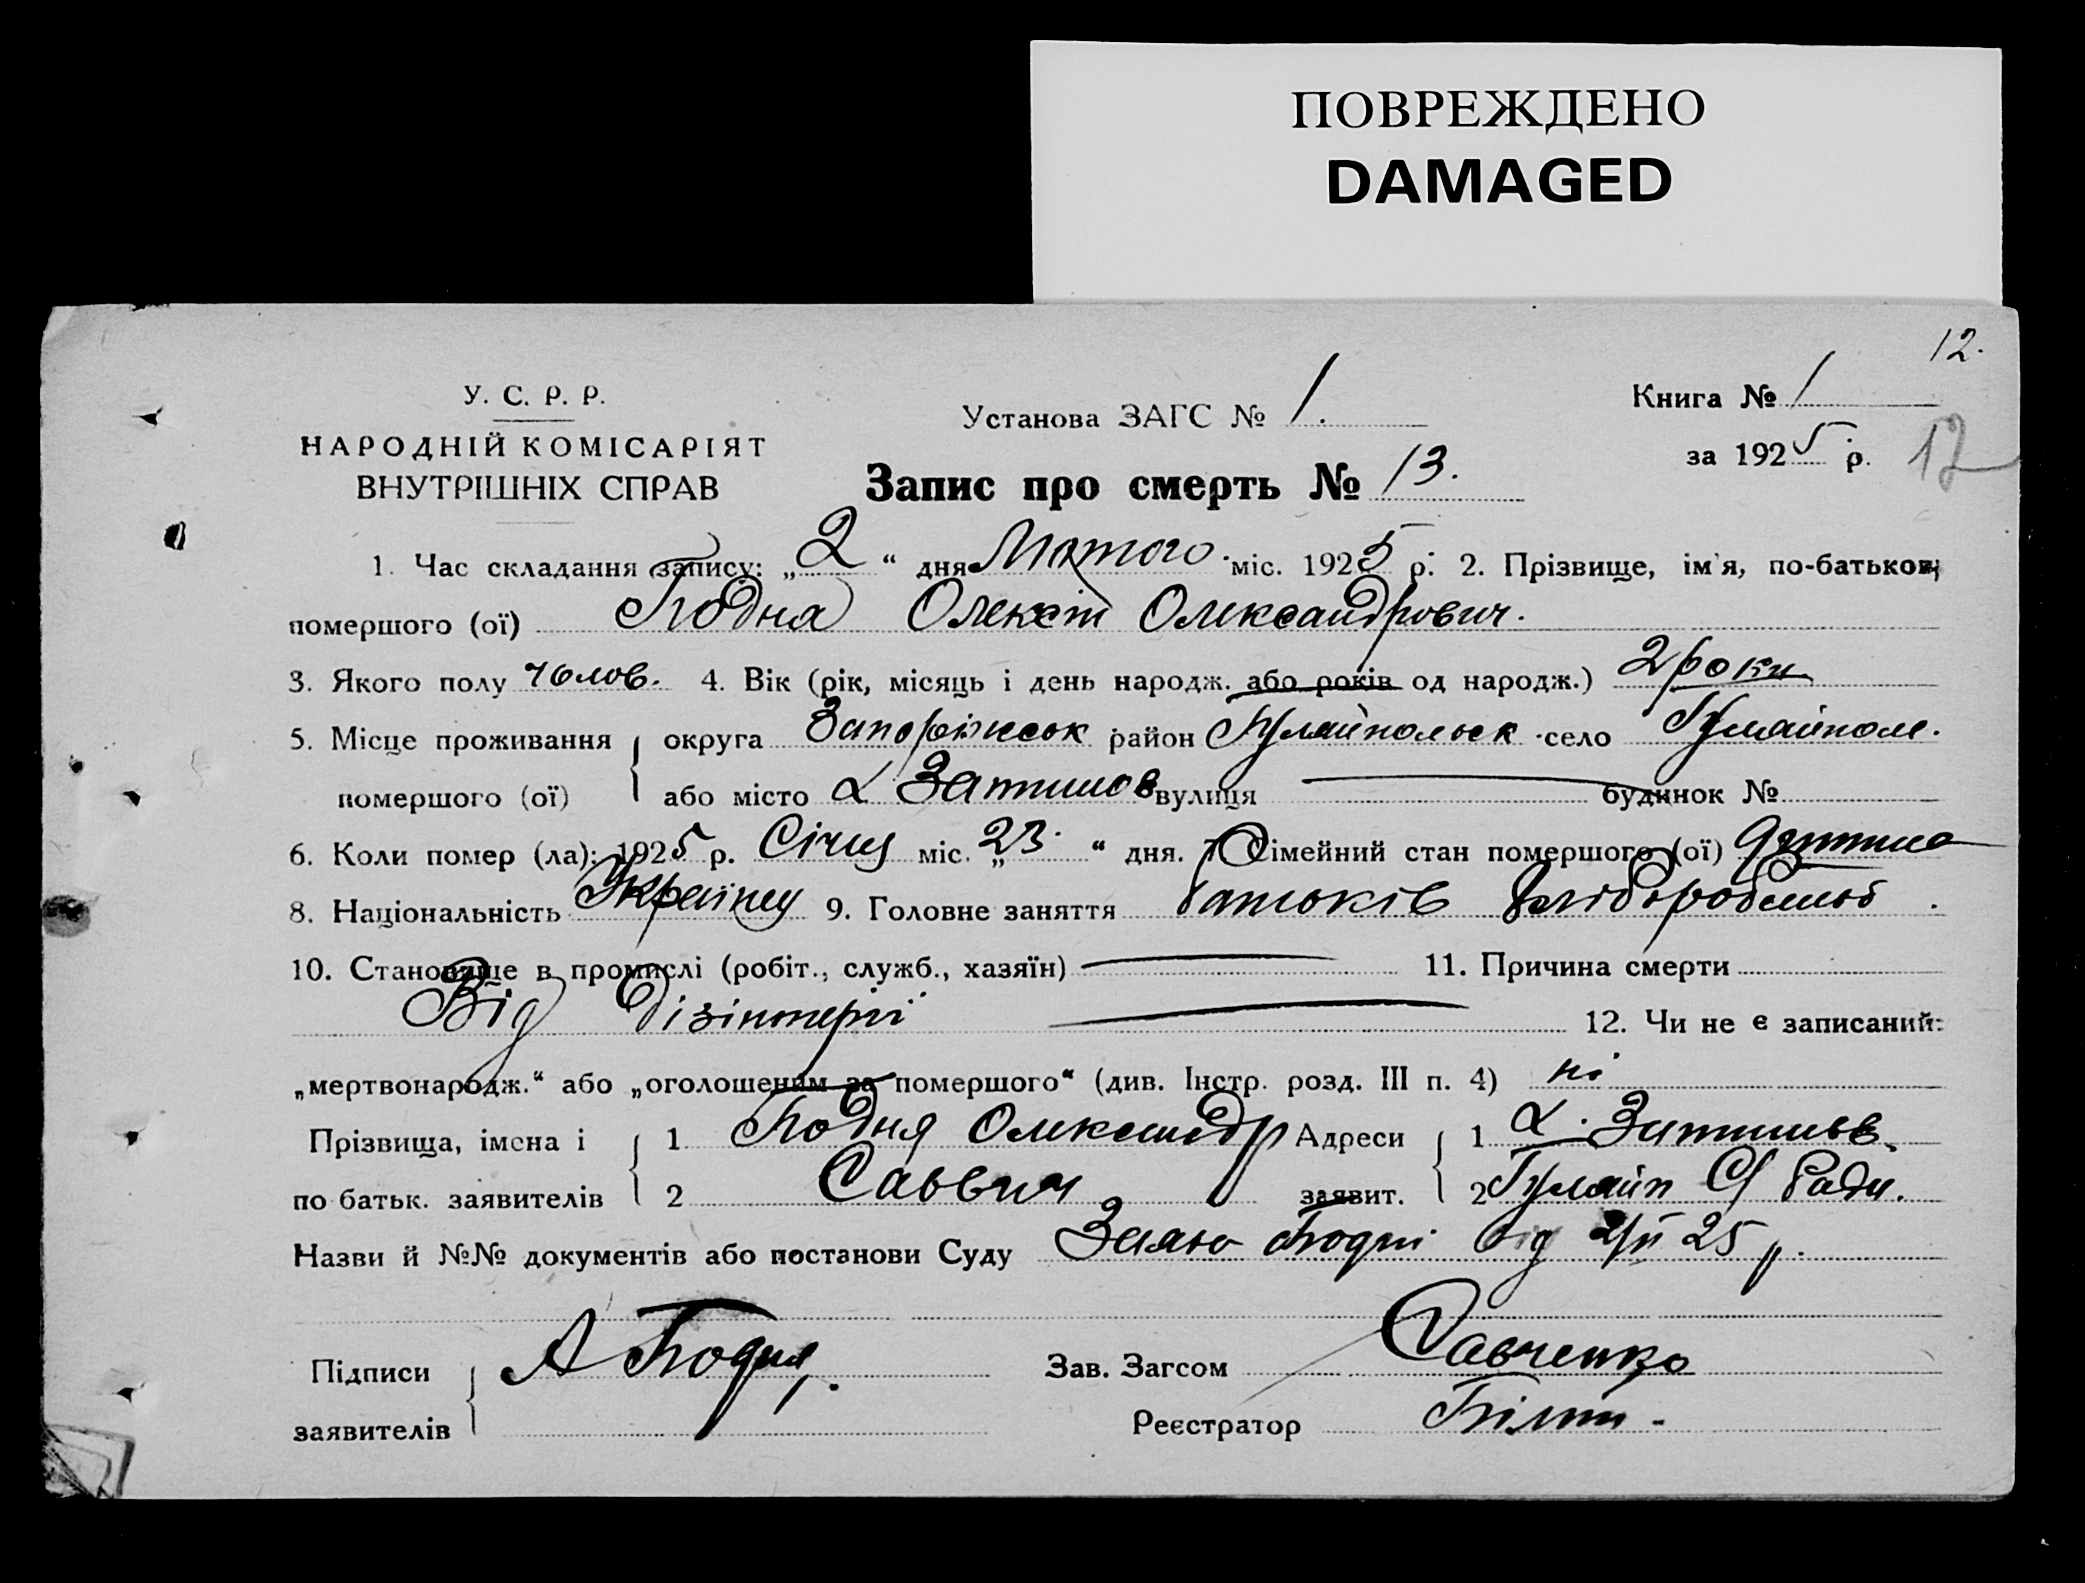 ПОВРЕЖДЕНО
DAMAGED
12.
У. С. Р. Р.
НАРОДНІЙ КОМІСАРІЯТ
ВНУТРІШНІХ СПРАВ
Установа ЗАГС № 1.
Книга № 1
за 1925 р.
12
Запис про смерть № 13.
1. Час складання запису: „2“ дня Лютого міс. 1925 р. 2. Прізвище, ім'я, по-батькові
помершого (ої) Бодня Олексій Олександрович.
3. Якого полу чолов. 4. Вік (рік, місяць і день народж. або років од народж.) 2 роки
5. Місце проживання округа Запоріжськ район Гуляйпольск село Гуляйполе.
помершого (ої) або місто х Затишов вулиця будинок №
6. Коли помер (ла): 1925 р. Січня міс. „23“ дня. 7. Сімейний стан помершого (ої) дитина
8. Національність Українц 9. Головне заняття батьків хлібороблство.
10. Становище в промислі (робіт., служб., хазяїн) 11. Причина смерти
Від дізінтерії 12. Чи не є записаний:
„мертвонародж.“ або „оголошеним за помершого“ (див. Інстр. розд. III п. 4) ні
Прізвища, імена і 1 Бодня Олександр Адреси 1 х. Затишов
по батьк. заявителів 2 Саввич заявит. 2 Гуляйп С/Ради.
Назви й №№ документів або постанови Суду Заяво Бодні від 2/II 25 р.
Підписи А Бодня Зав. Загсом Савченко
заявителів Реєстратор